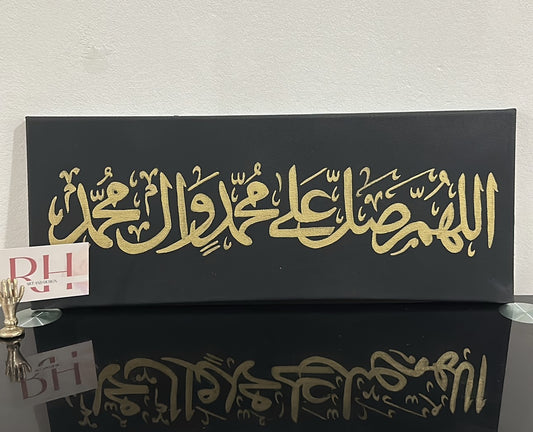 اللهم صل على محمد وال محمد
RH
ART AND DESIGN